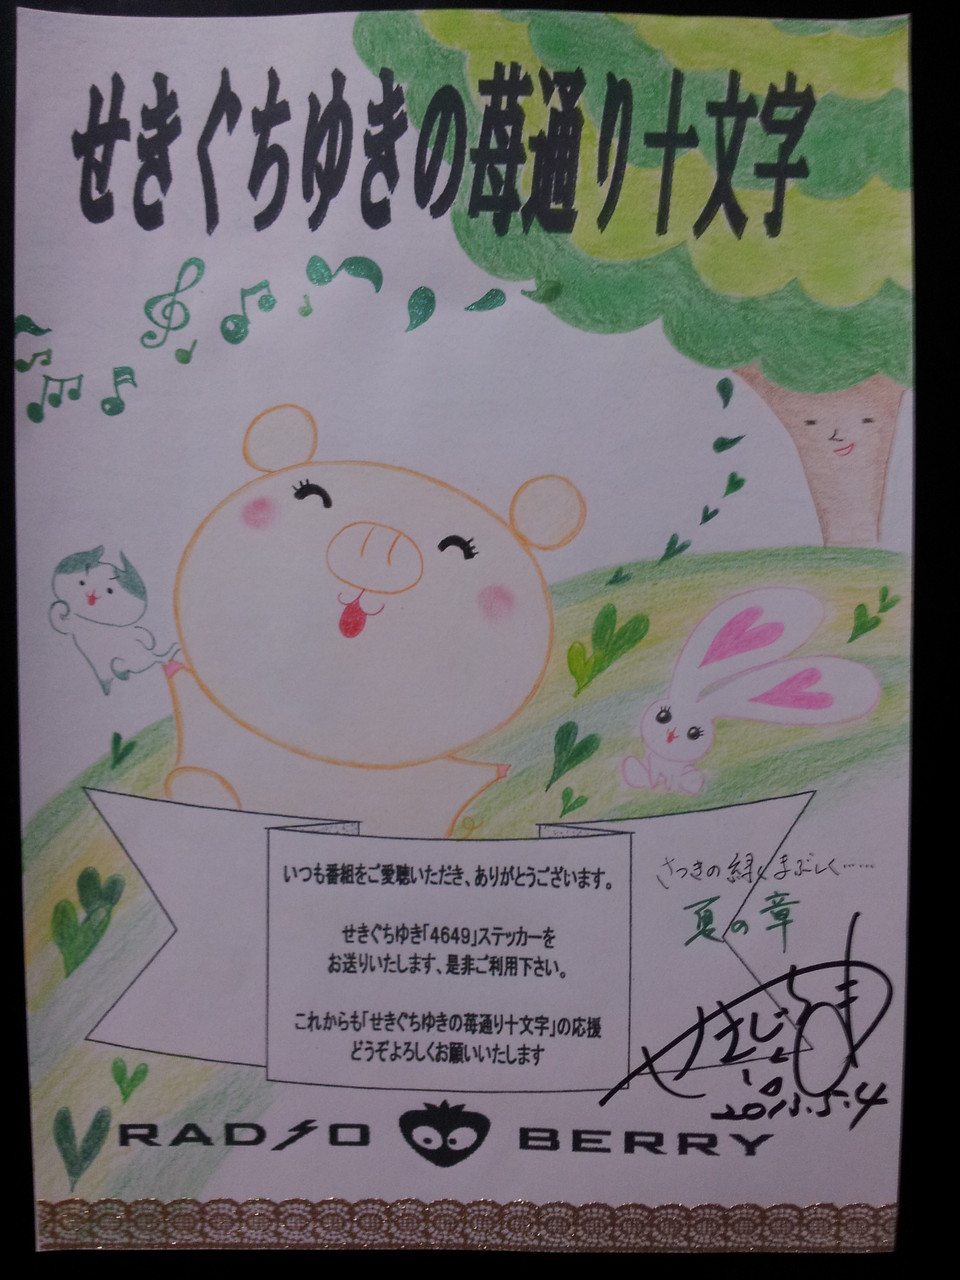 せきぐちゆきの苺通り十文字
いつも番組をご愛聴いただき、ありがとうございます。
せきぐちゆき「4649」ステッカーを
お送りいたします、是非ご利用下さい。
これからも「せきぐちゆきの苺通り十文字」の応援
どうぞよろしくお願いいたします
さつきの緑もまぶしく……
夏の章
せきぐちゆき
RADIO BERRY